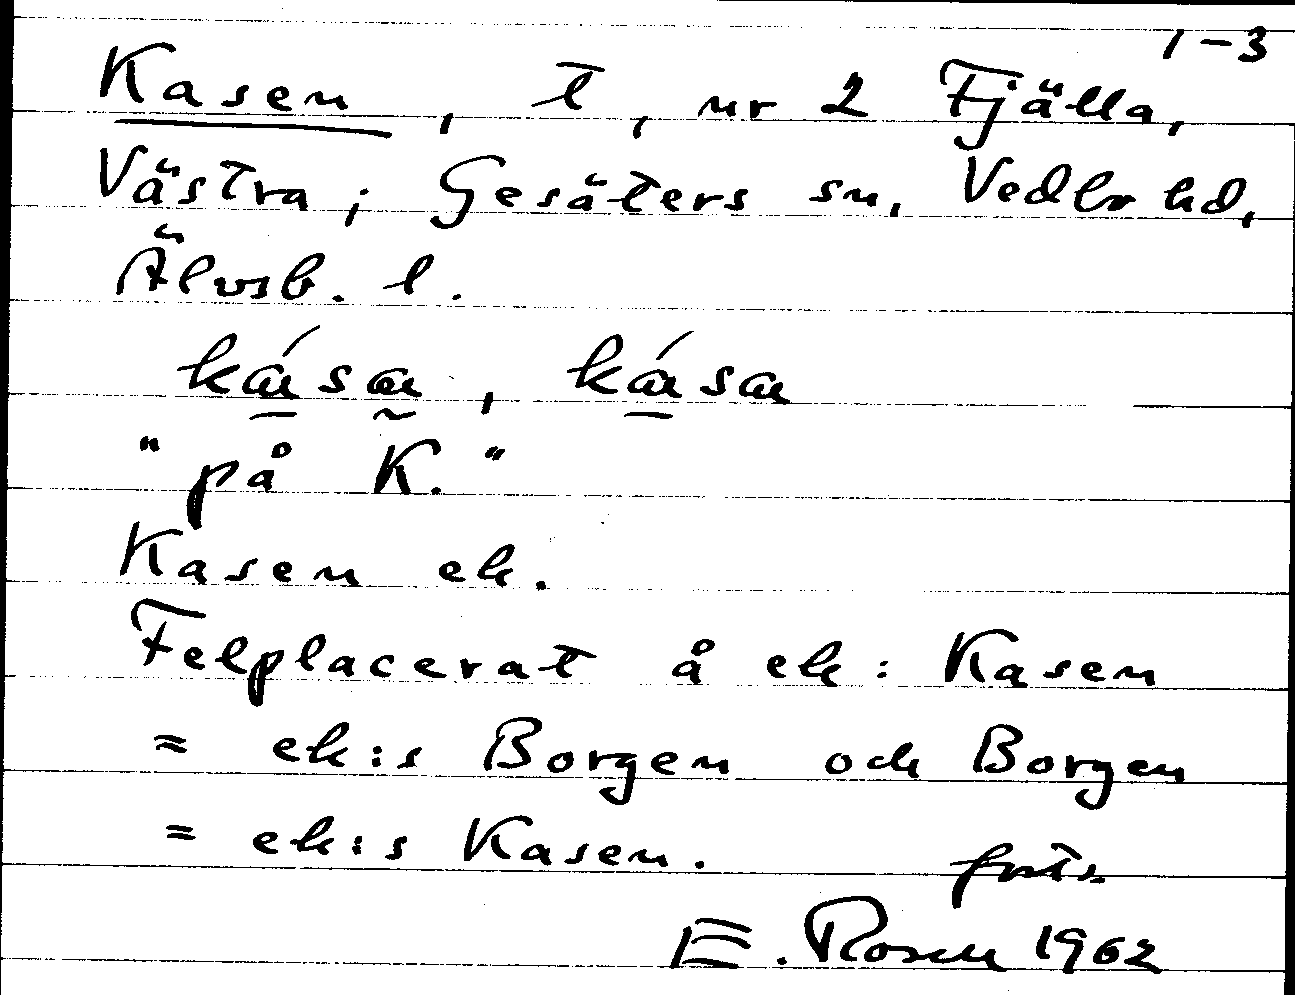 1-3
Kasen, t, nr 2 Fjälla,
Västra; Gesäters sn, Vedbo hd,
Älvsb. l.
ká̱sa̰, ká̱sa
"på K."
Kasen ek.
Felplacerat å ek: Kasen
= ek:s Borgen och Borgen
= ek:s Kasen.
forts.
E. Rosen 1962